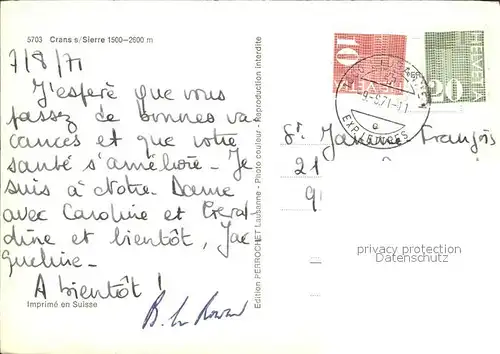 5703 Crans s/Sierre 1500-2600 m
7/8/71
J'espère que vous
passez de bonnes va
cances et que votre
santé s'améliore. Je
suis à Notre. Dame
avec Caroline et Géral-
dine et bientôt, Jac
queline.
A bientôt !
Imprimé en Suisse
Edition PERROCHET Lausanne - Photo couleur - Reproduction interdite
10
HELVETIA
20
HELVETIA
EXPL
François
21
9
privacy protection
Datenschutz